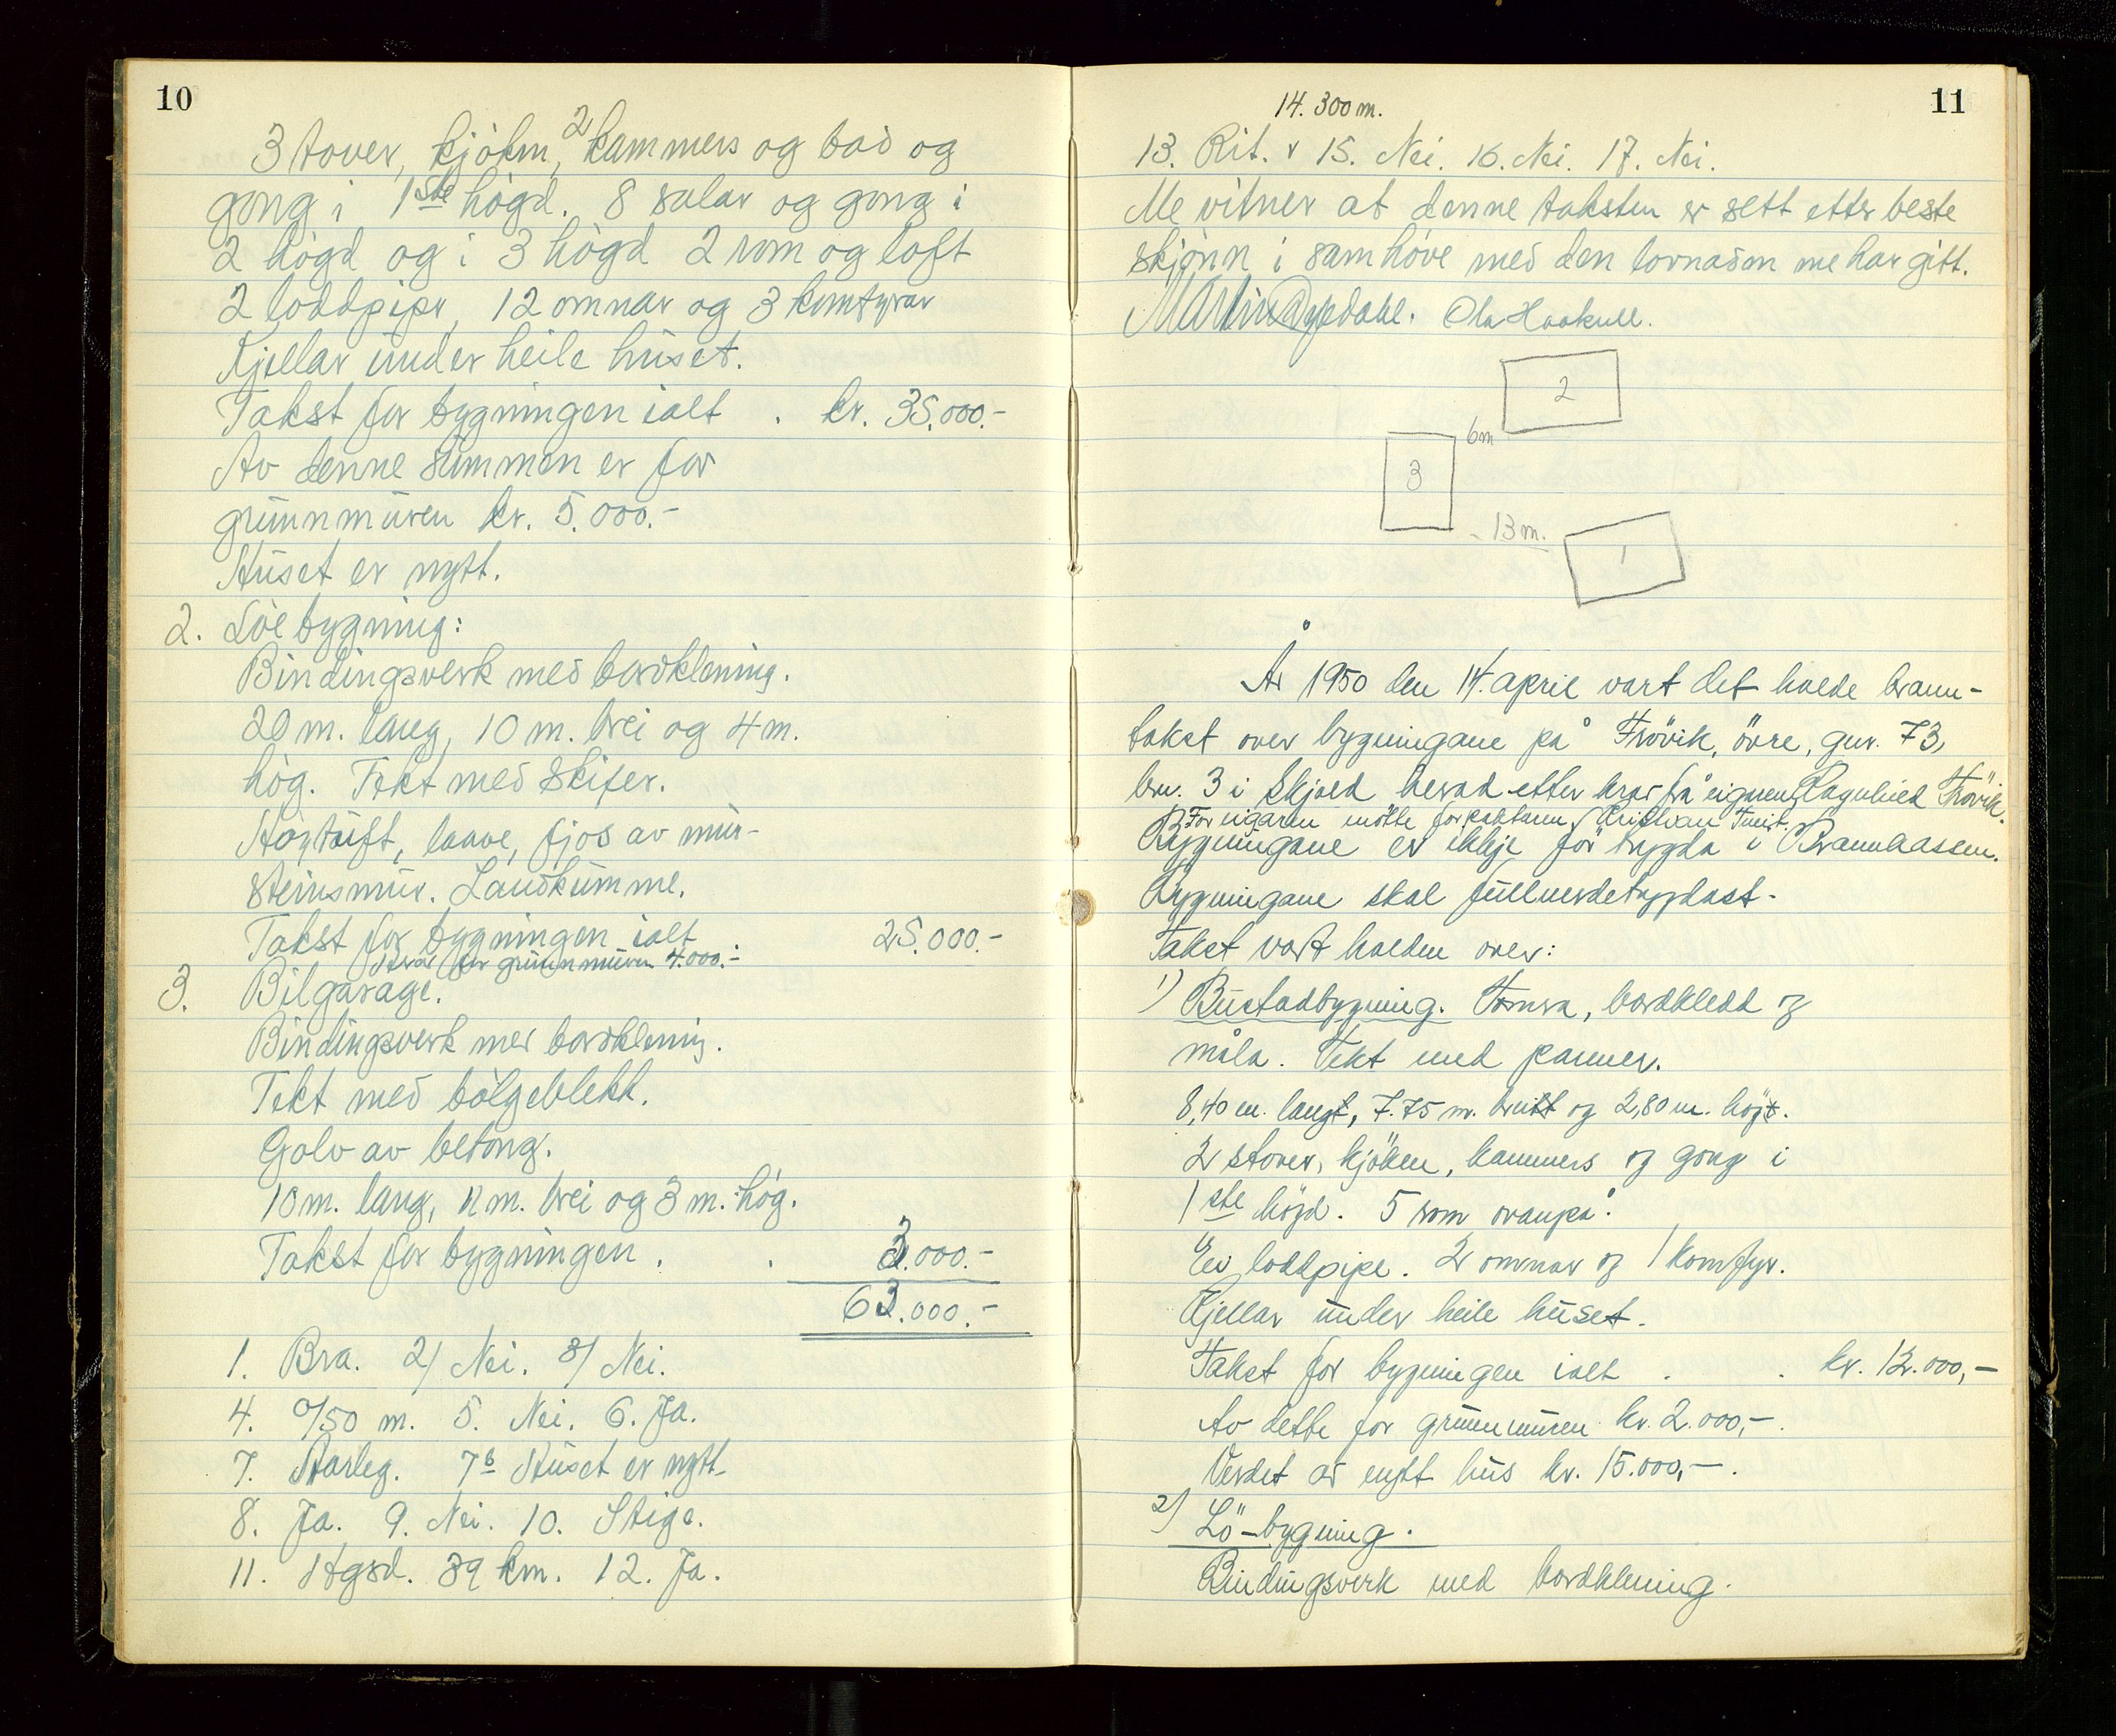 10
3 stover, kjøken, 2 kammers og bad og
gong i 1ste høgd. 8 salar og gong i
2 høgd og i 3 høgd 2 rom og loft
2 loddpipr, 12 omnar og 3 komfyrar
Kjellar under heile huset.
Takst for bygningen ialt . kr. 35.000.-
Av denne summen er for
grunnmuren kr. 5.000.-
Huset er nytt.
2. Löebygning:
Bindingsverk med bordklening.
20 m. lang, 10 m. brei og 4 m.
høg. Tekt med skifer.
Høgtuft, laave, fjos av mur-
steinsmur. Landkumme.
Takst for bygningen ialt 25.000.-
Herav for grunnmuren 4.000.-
3. Bilgarage.
Bindingsverk med bordklening.
Tekt med bølgeblekk.
Golv av betong.
10 m. lang, 11 m. brei og 3 m. høg.
Takst for bygningen . . 3.000.-
63.000.-
1. Bra. 2/ Nei. 3/ Nei.
4. 0/50 m. 5. Nei. 6. Ja.
7. Farleg. 7b Huset er nytt
8. Ja. 9. Nei. 10. Stige.
11. Hgsd. 39 km. 12. Ja.
11
14. 300 m.
13. Rit. v 15. Nei. 16. Nei. 17. Nei.
Me vitner at denne taksten er sett etter beste
skjønn i samhøve med den lovnaden me har gitt.
Martin Dypdahl. Ola Haakull.
2
6m
3
13 m.
1
År 1950 den 14. april vart det halde brann-
takst over bygningane på Frövik, övre, gnr. 73,
bnr. 3 i Skjold herad etter krav frå eigaren Ragnhild Frövik.
For eigaren møtte forpaktaren Kristian Tveit.
Bygningane er ikkje för trygda i Brannkassen.
Bygningane skal fullverdetrygdast.
Takst vart halden over:
1) Bustadbygning. Tømra, bordkledd og
måla. Tekt med panner.
8,40 m. langt, 7.75 m. breitt og 2,80 m. høgt.
2 stover, kjøken, kammers og gong i
1ste høgd. 5 rom ovanpå.
Ei loddpipe. 2 omnar og 1 komfyr.
Kjellar under heile huset.
Takst for bygningen ialt . . kr. 12.000,-
Av dette for grunnmuren kr. 2.000,-.
Verdet av nytt hus kr. 15.000,-.
2) Lö-bygning.
Bindingsverk med bordklening.